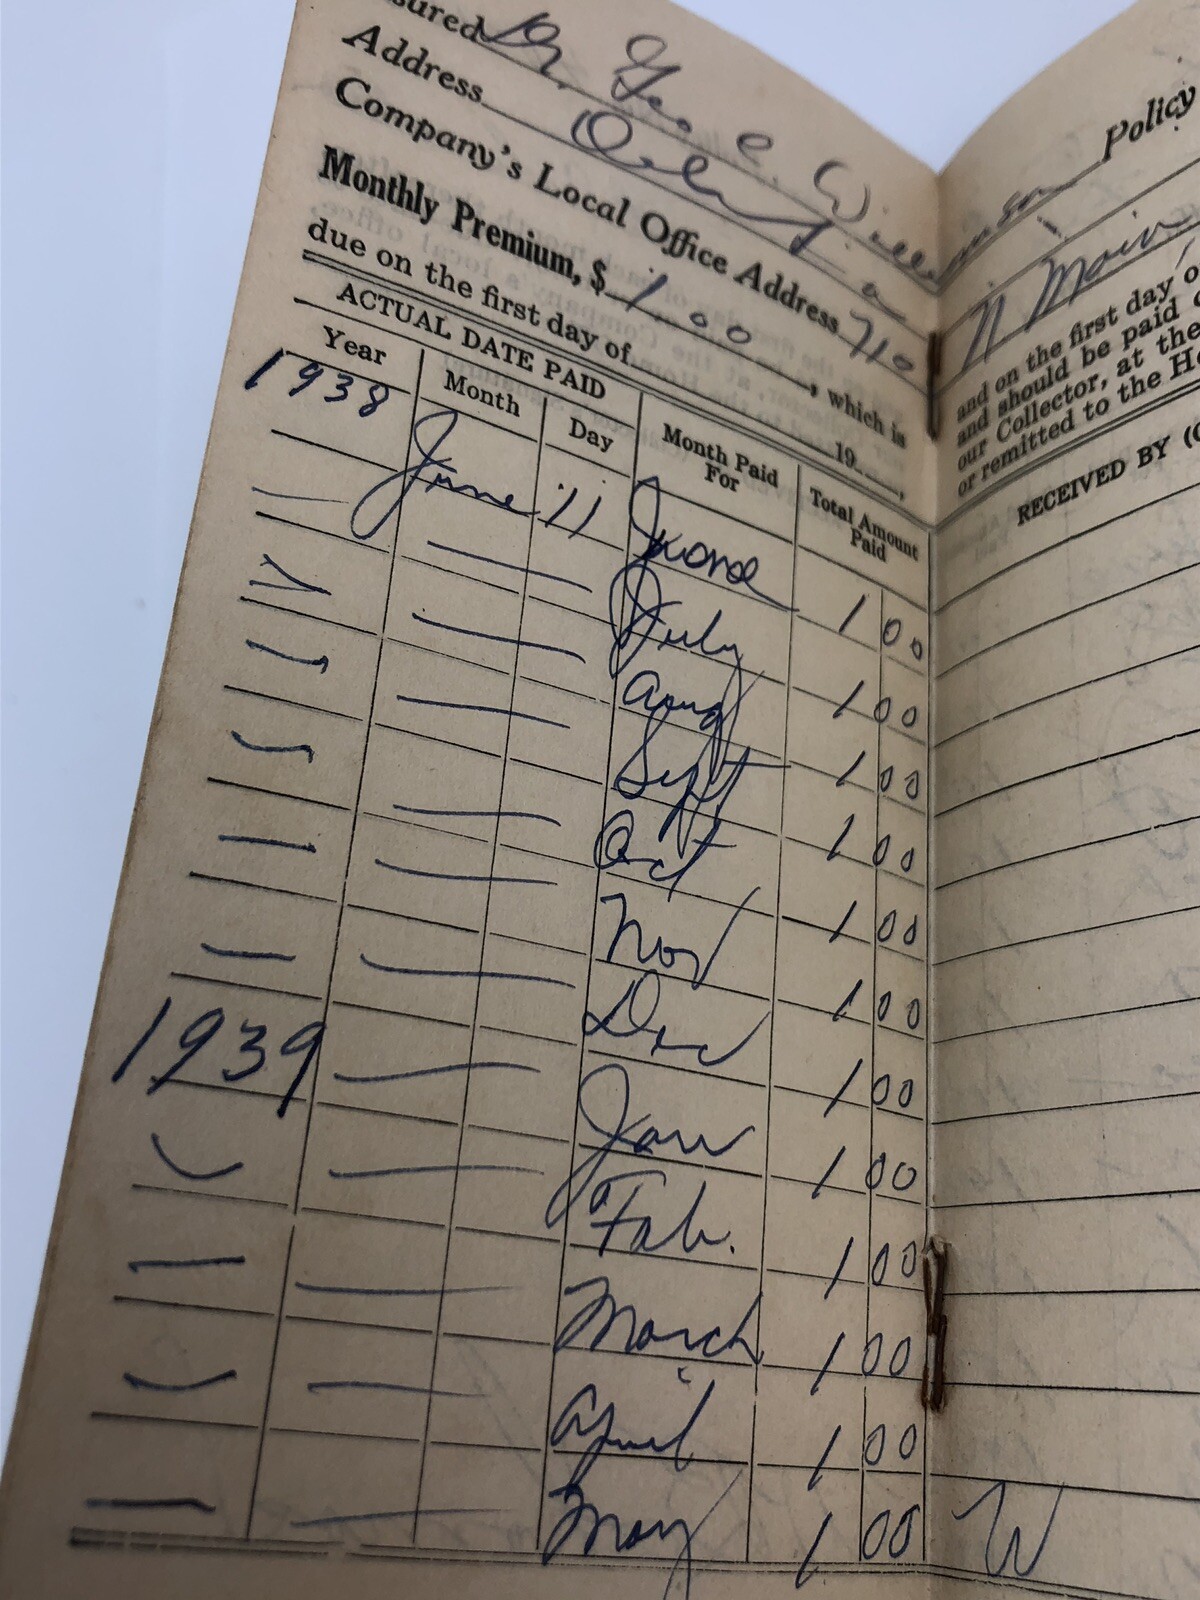 sured Dr. Geo. C. Williamson Policy
Address Orlando
Company's Local Office Address 710 N Main
Monthly Premium, $ 1.00, which is
due on the first day of 19 ,
and on the first day o
and should be paid
our Collector, at the
or remitted to the Ho
ACTUAL DATE PAID Month Paid For Total Amount Paid RECEIVED BY (
Year Month Day
1938 June 11 June 1 00
— — July 1 00
" — Aug 1 00
" — Sept 1 00
" — Oct 1 00
— — Nov 1 00
— — Dec 1 00
1939 — Jan 1 00
" — Feb. 1 00
— — March 1 00
" — April 1 00
— — May 1 00 W